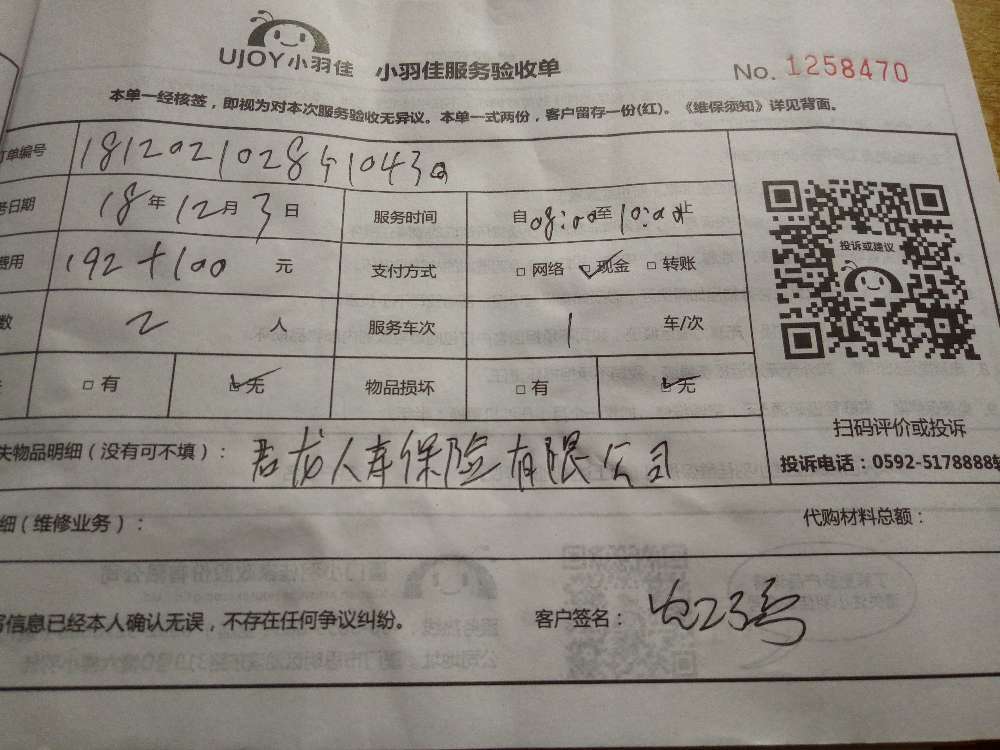 UJOY小羽佳 小羽佳服务验收单 No. 1258470
本单一经核签，即视为对本次服务验收无异议。本单一式两份，客户留存一份(红)。《维保须知》详见背面。
订单编号
务日期 18 年 12 月 3 日 服务时间 自 08:00 至 10:00 止
费用 192+100 元 支付方式 □ 网络 ☑ 现金 □ 转账
数 2 人 服务车次 1 车/次
□ 有 ☑ 无 物品损坏 □ 有 ☑ 无
投诉或建议
扫码评价或投诉
失物品明细（没有可不填）： 君龙人寿保险有限公司
投诉电话：0592-5178888转
细（维修业务）： 代购材料总额：
写信息已经本人确认无误，不存在任何争议纠纷。 客户签名：